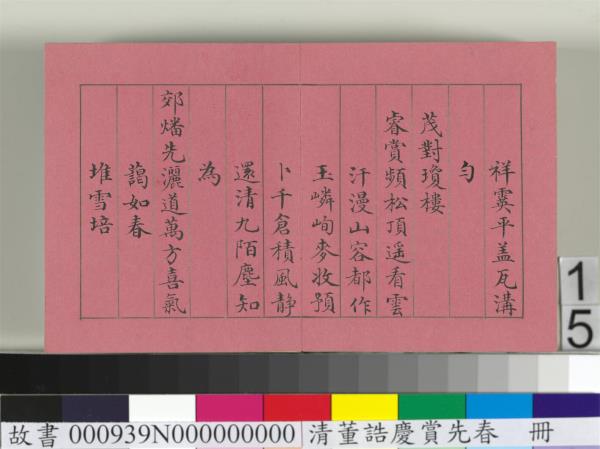 祥霙平盖瓦溝
勻
茂對瓊樓
睿賞頻松頂遥看雲
汗漫山容都作
玉嶙峋麥收預
卜千倉積風静
還清九陌塵知
為
郊燔先灑道萬方喜氣
藹如春
堆雪培
15
故書 000939N000000000 清董誥慶賞先春 冊